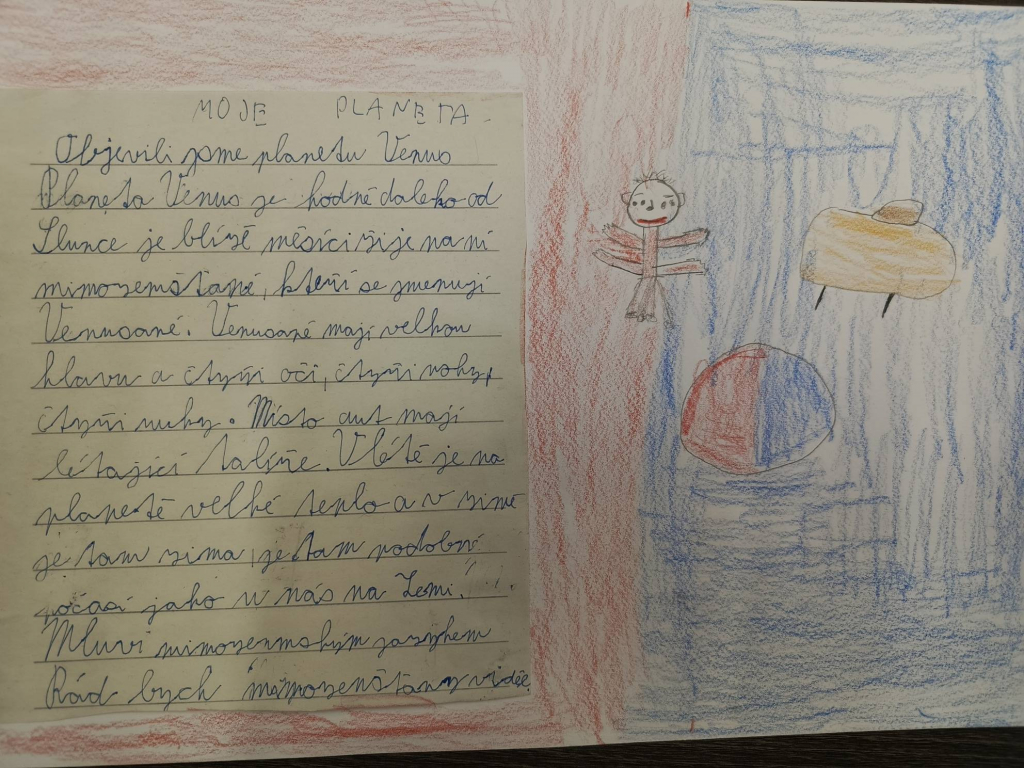 MOJE PLANETA
Objevili jsme planetu Venus
Planeta Venus je hodně daleko od
Slunce je blízě měsíci žije na ní
mimozemšťané, kteří se jmenují
Venusané. Venusané mají velkou
hlavu a čtyři oči, čtyři nohy,
čtyři ruky. Místo aut mají
létající talíře. V létě je na
planetě velké teplo a v zimě
je tam zima, je tam podobný
počasí jako u nás na Zemi.
Mluví mimozemským jazykem
Rád bych mimozemšťany viděl